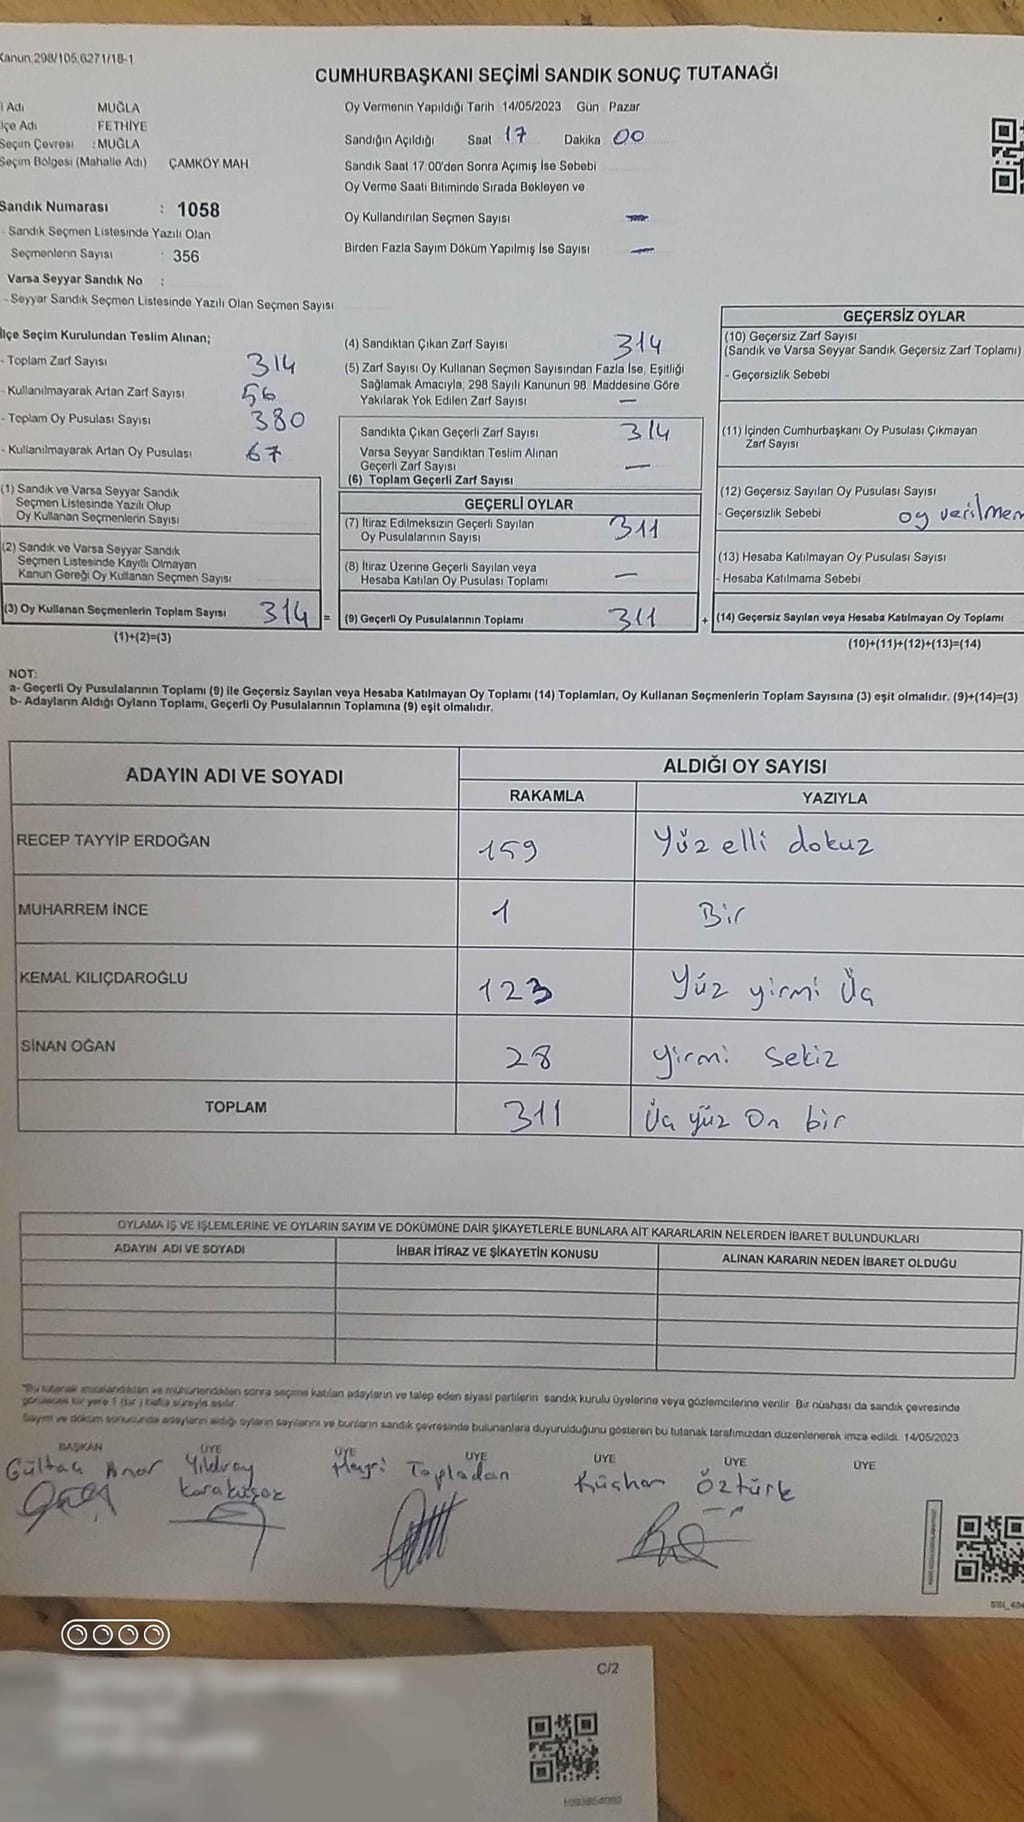 Kanun;298/105;6271/18-1
CUMHURBAŞKANI SEÇİMİ SANDIK SONUÇ TUTANAĞI
l Adı MUĞLA
lçe Adı FETHİYE
Seçim Çevresi : MUĞLA
Seçim Bölgesi (Mahalle Adı) ÇAMKÖY MAH
Sandık Numarası : 1058
- Sandık Seçmen Listesinde Yazılı Olan
Seçmenlerin Sayısı : 356
Varsa Seyyar Sandık No :
- Seyyar Sandık Seçmen Listesinde Yazılı Olan Seçmen Sayısı
Oy Vermenin Yapıldığı Tarih 14/05/2023 Gün Pazar
Sandığın Açıldığı Saat 17 Dakika 00
Sandık Saat 17:00'den Sonra Açımış İse Sebebi
Oy Verme Saati Bitiminde Sırada Bekleyen ve
Oy Kullandırılan Seçmen Sayısı —
Birden Fazla Sayım Döküm Yapılmış İse Sayısı —
İlçe Seçim Kurulundan Teslim Alınan;
- Toplam Zarf Sayısı 314
- Kullanılmayarak Artan Zarf Sayısı 56
- Toplam Oy Pusulası Sayısı 380
- Kullanılmayarak Artan Oy Pusulası 67
(1) Sandık ve Varsa Seyyar Sandık
Seçmen Listesinde Yazılı Olup
Oy Kullanan Seçmenlerin Sayısı
(2) Sandık ve Varsa Seyyar Sandık
Seçmen Listesinde Kayıtlı Olmayan
Kanun Gereği Oy Kullanan Seçmen Sayısı
(3) Oy Kullanan Seçmenlerin Toplam Sayısı 314 =
(1)+(2)=(3)
(4) Sandıktan Çıkan Zarf Sayısı 314
(5) Zarf Sayısı Oy Kullanan Seçmen Sayısından Fazla İse, Eşitliği
Sağlamak Amacıyla, 298 Sayılı Kanunun 98. Maddesine Göre
Yakılarak Yok Edilen Zarf Sayısı —
Sandıkta Çıkan Geçerli Zarf Sayısı 314
Varsa Seyyar Sandıktan Teslim Alınan
Geçerli Zarf Sayısı —
(6) Toplam Geçerli Zarf Sayısı
GEÇERLİ OYLAR
(7) İtiraz Edilmeksizin Geçerli Sayılan
Oy Pusulalarının Sayısı 311
(8) İtiraz Üzerine Geçerli Sayılan veya
Hesaba Katılan Oy Pusulası Toplamı —
(9) Geçerli Oy Pusulalarının Toplamı 311 +
GEÇERSİZ OYLAR
(10) Geçersiz Zarf Sayısı
(Sandık ve Varsa Seyyar Sandık Geçersiz Zarf Toplamı)
- Geçersizlik Sebebi
(11) İçinden Cumhurbaşkanı Oy Pusulası Çıkmayan
Zarf Sayısı
(12) Geçersiz Sayılan Oy Pusulası Sayısı
- Geçersizlik Sebebi oy verilmem
(13) Hesaba Katılmayan Oy Pusulası Sayısı
- Hesaba Katılmama Sebebi
(14) Geçersiz Sayılan veya Hesaba Katılmayan Oy Toplamı
(10)+(11)+(12)+(13)=(14)
NOT:
a- Geçerli Oy Pusulalarının Toplamı (9) ile Geçersiz Sayılan veya Hesaba Katılmayan Oy Toplamı (14) Toplamları, Oy Kullanan Seçmenlerin Toplam Sayısına (3) eşit olmalıdır. (9)+(14)=(3)
b- Adayların Aldığı Oyların Toplamı, Geçerli Oy Pusulalarının Toplamına (9) eşit olmalıdır.
ADAYIN ADI VE SOYADI ALDIĞI OY SAYISI
RAKAMLA YAZIYLA
RECEP TAYYİP ERDOĞAN 159 Yüz elli dokuz
MUHARREM İNCE 1 Bir
KEMAL KILIÇDAROĞLU 123 Yüz yirmi Üç
SİNAN OĞAN 28 yirmi sekiz
TOPLAM 311 Üç yüz On bir
OYLAMA İŞ VE İŞLEMLERİNE VE OYLARIN SAYIM VE DÖKÜMÜNE DAİR ŞİKAYETLERLE BUNLARA AİT KARARLARIN NELERDEN İBARET BULUNDUKLARI
ADAYIN ADI VE SOYADI İHBAR İTİRAZ VE ŞİKAYETİN KONUSU ALINAN KARARIN NEDEN İBARET OLDUĞU
"Bu tutanak imzalandıktan ve mühürlendikten sonra seçime katılan adayların ve talep eden siyasi partilerin sandık kurulu üyelerine veya gözlemcilerine verilir. Bir nüshası da sandık çevresinde
görülecek bir yere 1 (bir) hafta süreyle asılır.
Sayım ve döküm sonucunda adayların aldığı oyların sayılarını ve bunların sandık çevresinde bulunanlara duyurulduğunu gösteren bu tutanak tarafımızdan düzenlenerek imza edildi. 14/05/2023
BAŞKAN ÜYE ÜYE ÜYE ÜYE ÜYE ÜYE
Yıldıray Topladan Öztürk
C/2